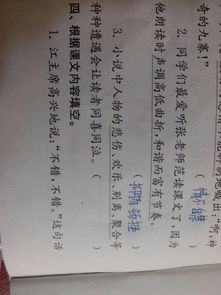 奇的九寨！”
2. 同学们最爱听张老师范读课文了，因为
他朗读时声调高低曲折，和谐而富有节奏。
3. 小说中人物的悲伤、欢乐、别离、聚合等
种种遭遇会让读者同喜同泣。（ ）
四、根据课文内容填空。
1. 江主席高兴地说：“不错，不错。”这句话